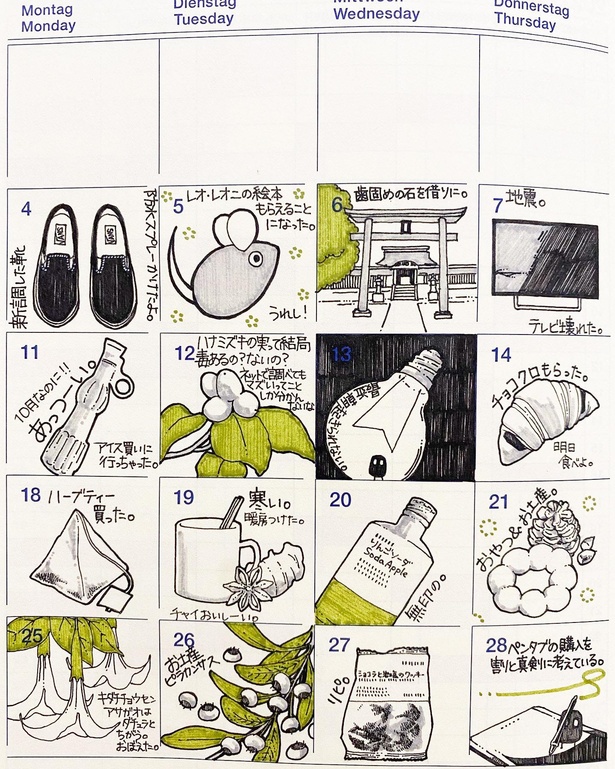 Montag
Monday
Dienstag
Tuesday
Mittwoch
Wednesday
Donnerstag
Thursday
4
新調した靴
防水スプレーかけたよ。
VANS
VANS
5
レオ・レオニの絵本
もらえること
になった。
うれし!
6
歯固めの石を借りに。
7
地震。
テレビ壊れた。
11
10月なのに!!
あっつーい。
アイス買いに
行っちゃった。
12
ハナミズキの実って結局
毒あるの?ないの?
ネットで調べても
マズいってこと
しか分かん
ないな
13
14
チョコクロもらった。
明日
食べよ。
18
ハーブティー
買った。
19
寒い。
暖房つけた。
チャイおいしーい。
20
りんごソーダ
Soda Apple
無印の。
21
おやつ&お土産。
25
キダチチョウセン
アサガオは
ダチュラと
ちがう。
おぼえた。
26
お土産
ピラカンサス
27
リピ。
ショコラと塩のクッキー
28
ペンタブの購入を
割と真剣に考えている。